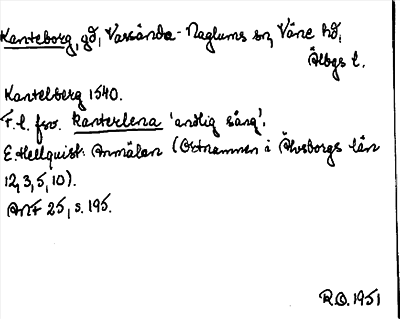 Kanteborg, gd, Vassända-Naglums sn, Väne hd,
Älvbgs l.
Kantelberg 1540.
T. l. fsv. kanterlena 'andlig sång'.
E. Hellquist. Anmälan (Ortnamnen i Älvsborgs län
12, 3, 5, 10).
ANF 25, s. 195.
R.O. 1951